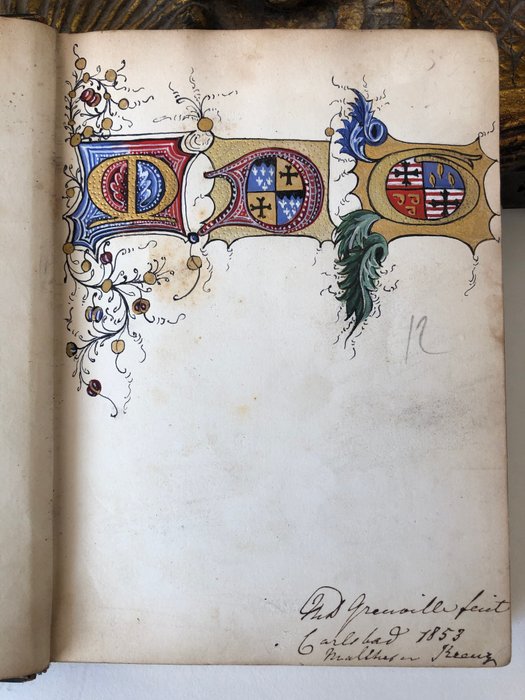 M D G
12
MD Grenville fecit
Carlsbad 1853
Maltheser Kreuz